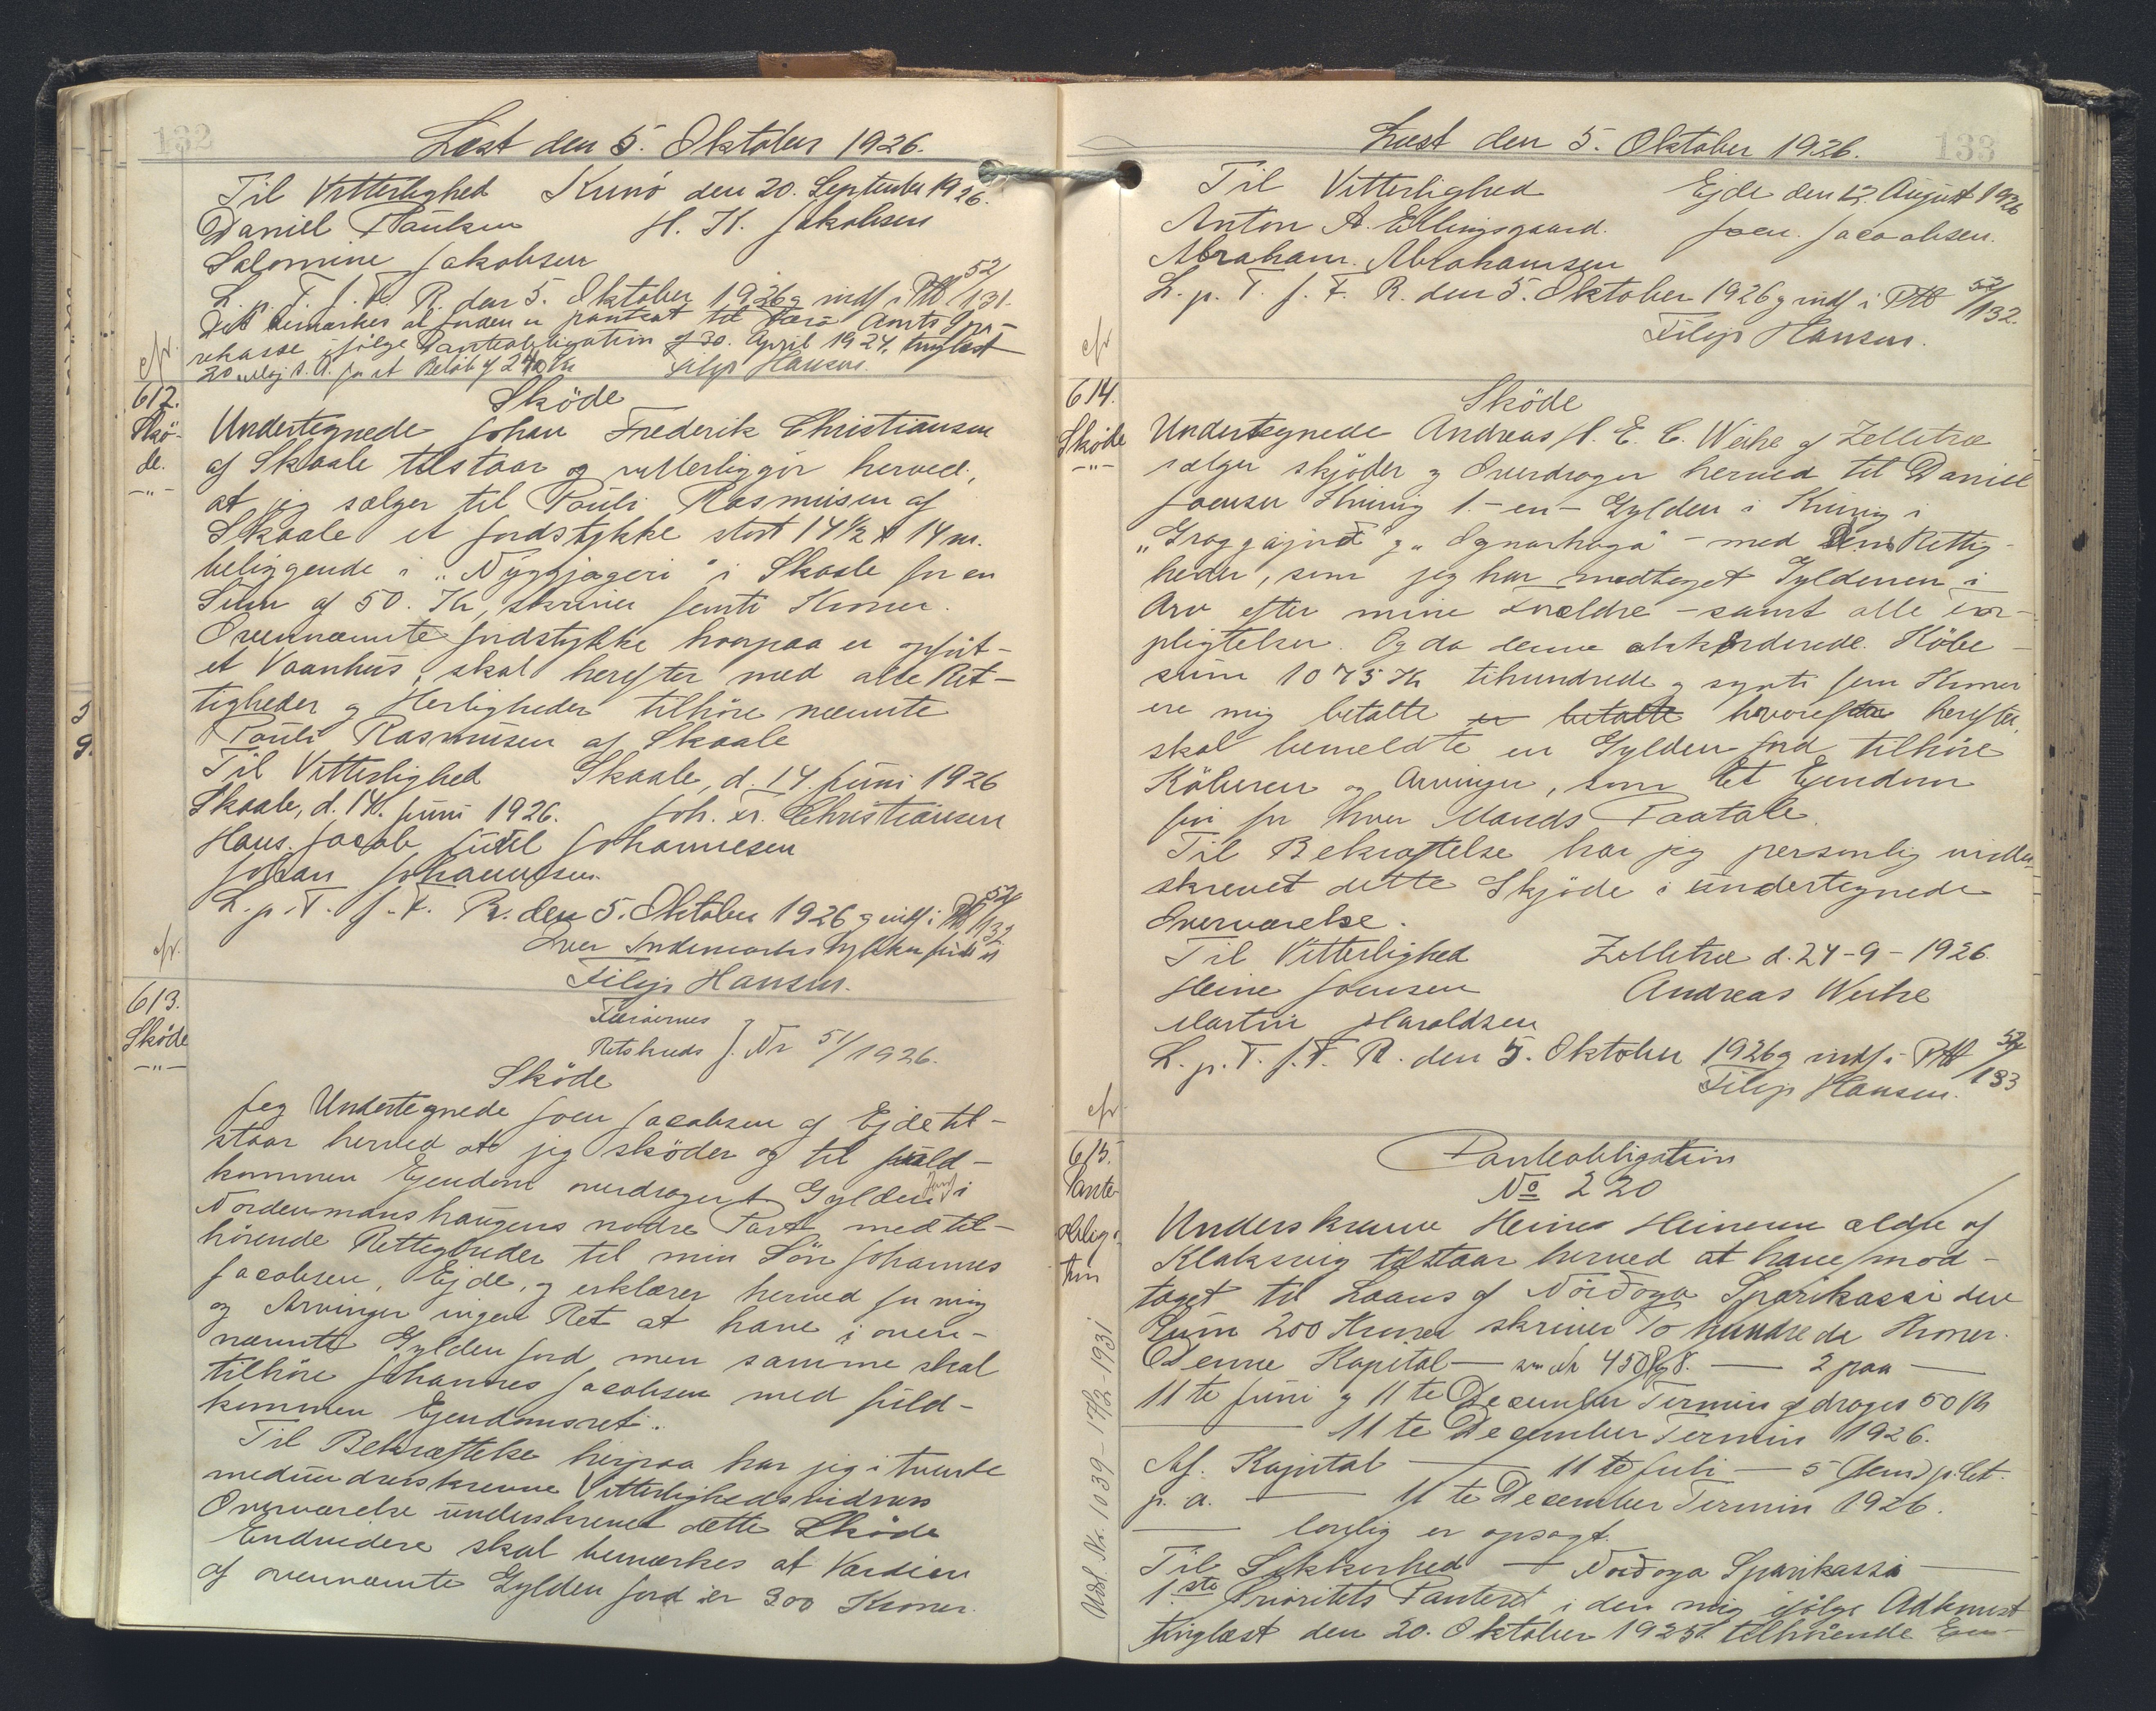 132
Læst den 5. Oktober 1926.
Til Vitterlighed Kunö den 20. September 1926.
Daniel Paulsen H. K. Jakobsen
Salomine Jakobsen
L. p. T. f. F. R. den 5. Oktober 1926 og indf i PB 52/131.
Det bemærkes at Jorden er pantsat til Færö Amts Spa-
rekasse ifölge Panteobligation af 30. April 1924, tinglæst
20. Maj s. A. for et Belöb af 240 Kr Filip Hansen.
cfr.
612.
Skö-
de.
-"-
Sköde
Undertegnede Johan Frederik Christiansen
af Skaale tilstaar og vitterliggör herved,
at jeg sælger til Pauli Rasmusen af
Skaale et Jordstykke stort 14½ x 14 m.
beliggende i "Nyggjageri" i Skaale for en
Sum af 50. Kr, skriver femti Kroner.
Ovennævnte Jordstykke hvorpaa er opfört
et Vaanhus, skal herefter med alle Ret-
tigheder og Herligheder tilhöre nævnte
Pauli Rasmusen af Skaale
Til Vitterlighed Skaale, d. 14. Juni 1926
Skaale, d. 14. Juni 1926. Joh. Fr. Christiansen
Hans Jacob Juel Johannesen
Johan Johannesen.
L. p. T. f. F. R. den 5. Oktober 1926 og indf i PB 52/132
Filip Hansen.
cfr.
613.
Sköde
-"-
Færöernes
Retskreds J. Nr 51/1926.
Sköde
Jeg Undertegnede Joen Jacobsen af Ejde til-
staar herved at jeg sköder og til fuld-
kommen Ejendom overdrager 1 Gylden Jord i
Nordenmanshaugens nedre Part med til-
hörende Rettigheder til min Sön Johannes
Jacobsen, Ejde, og erklærer herved for mig
og Arvinger ingen Ret at have i oven-
nævnte Gylden Jord men samme skal
tilhöre Johannes Jacobsen med fuld-
kommen Ejendomsret.
Til Bekræftelse herpaa har jeg i tvende
medunderskrevne Vitterlighedsvidners
Overværelse underskrevet dette Sköde
Endvidere skal bemærkes at Værdien
af ovennævnte Gylden Jord er 300 Kroner.
133
Læst den 5. Oktober 1926.
Til Vitterlighed Ejde den 12. August 1926
Anton A. Ellingsgaard. Joen. Jacobsen.
Abraham. Abrahamsen
L. p. T. f. F. R. den 5. Oktober 1926 og indf i PB 52/132.
Filip Hansen.
cfr
614.
Sköde
-"-
Sköde
Undertegnede Andreas H. E. C. Weihe af Zelletræ
sælger skjöder og Overdrager herved til Daniel
Joensen Kunig 1 - en - Gylden i Kunig i
med Rettig-
heder, som jeg har modtaget Gyldenen i
Arv efter mine Forældre - samt alle For-
pligtelser. Og da denne akkorderede Köbe-
sum 1075 Kr tihundrede og sypti fem Kroner
ere mig betalte er betalte hvorefter herefter
skal bemeldte en Gylden Jord tilhöre
Köberen og Arvinger, som et Ejendom
fri for hver Mands Paatale.
Til Bekræftelse har jeg personlig under-
skrevet dette Skjöde i undertegnede
Overværelse.
Til Vitterlighed Zelletræ d. 24-9-1926.
Heine Joensen Andreas Weihe
Martin Haraldsen
L. p. T. f. F. R. den 5. Oktober 1926 og indf i PB 52/133
Filip Hansen.
cfr.
615.
Pante-
obliga-
tion
Panteobligation
No 220
Underskrevne Heine Heinesen ældre af
Klaksvig tilstaar herved at have mod-
taget til Laans af Nordoya Sparikassi den
Sum 200 Kroner skriver To hundrede Kroner.
Denne Kapital — 2 paa —
11te Juni og 11te December Termin afdrages 50 Kr
— 11te December Termin 1926.
Af. Kapital — 11te Juli — 5 (fem) p. Ct.
p. a. — 11te December Termin 1926.
— lovlig er opsagt.
Til Sikkerhed — Nordoya Sparikassa —
1.ste Prioritets Panteret i den mig ifölge Adkomst
tinglæst den 20. Oktober 1925 tilhörende
Udsl. Nr. 1039 - 17/2 - 1931